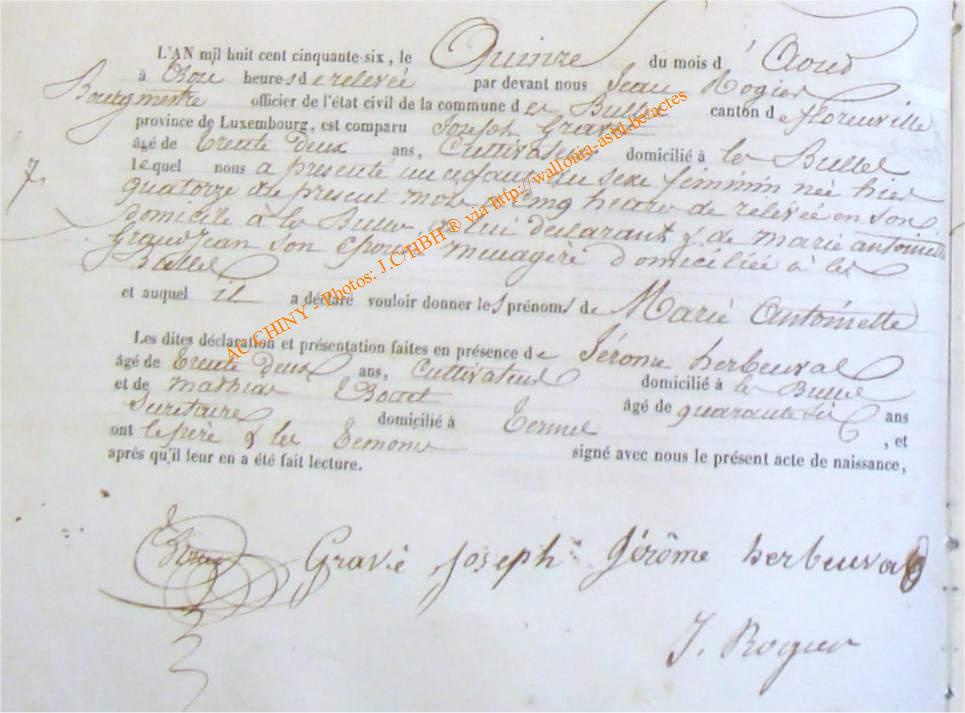 L'AN mil huit cent cinquante-six, le Quinze du mois d'Aoud
à heures de relevée par devant nous Jean Rogier
Bourgmestre officier de l'état civil de la commune des Bulles canton de florenville
province de Luxembourg, est comparu Joseph Gravié
âgé de trente deux ans, Cultivateur domicilié à les Bulles
lequel nous a présenté un enfant du sexe féminin née hier
quatorze du présent mois à cinq heures de relevée en son
domicile à les Bulles de lui déclarant & de marie antoinette
Grandjean son épouse, menagère domiciliée à les
Bulles
et auquel il a déclaré vouloir donner les prénoms de Marie Antoinette
Les dites déclaration et présentation faites en présence de Jérome herbeuval
âgé de trente deux ans, Cultivateur domicilié à les Bulles
et de mathias âgé de quarante six ans
Secrétaire domicilié à Termes, et
ont le père & les témoins signé avec nous le présent acte de naissance,
après qu'il leur en a été fait lecture.
7
Gravié Joseph Jérôme herbeuval
J. Rogier
AC CHINY - Photos: J.C HBH ® via http://wallonia-asbl-be/actes